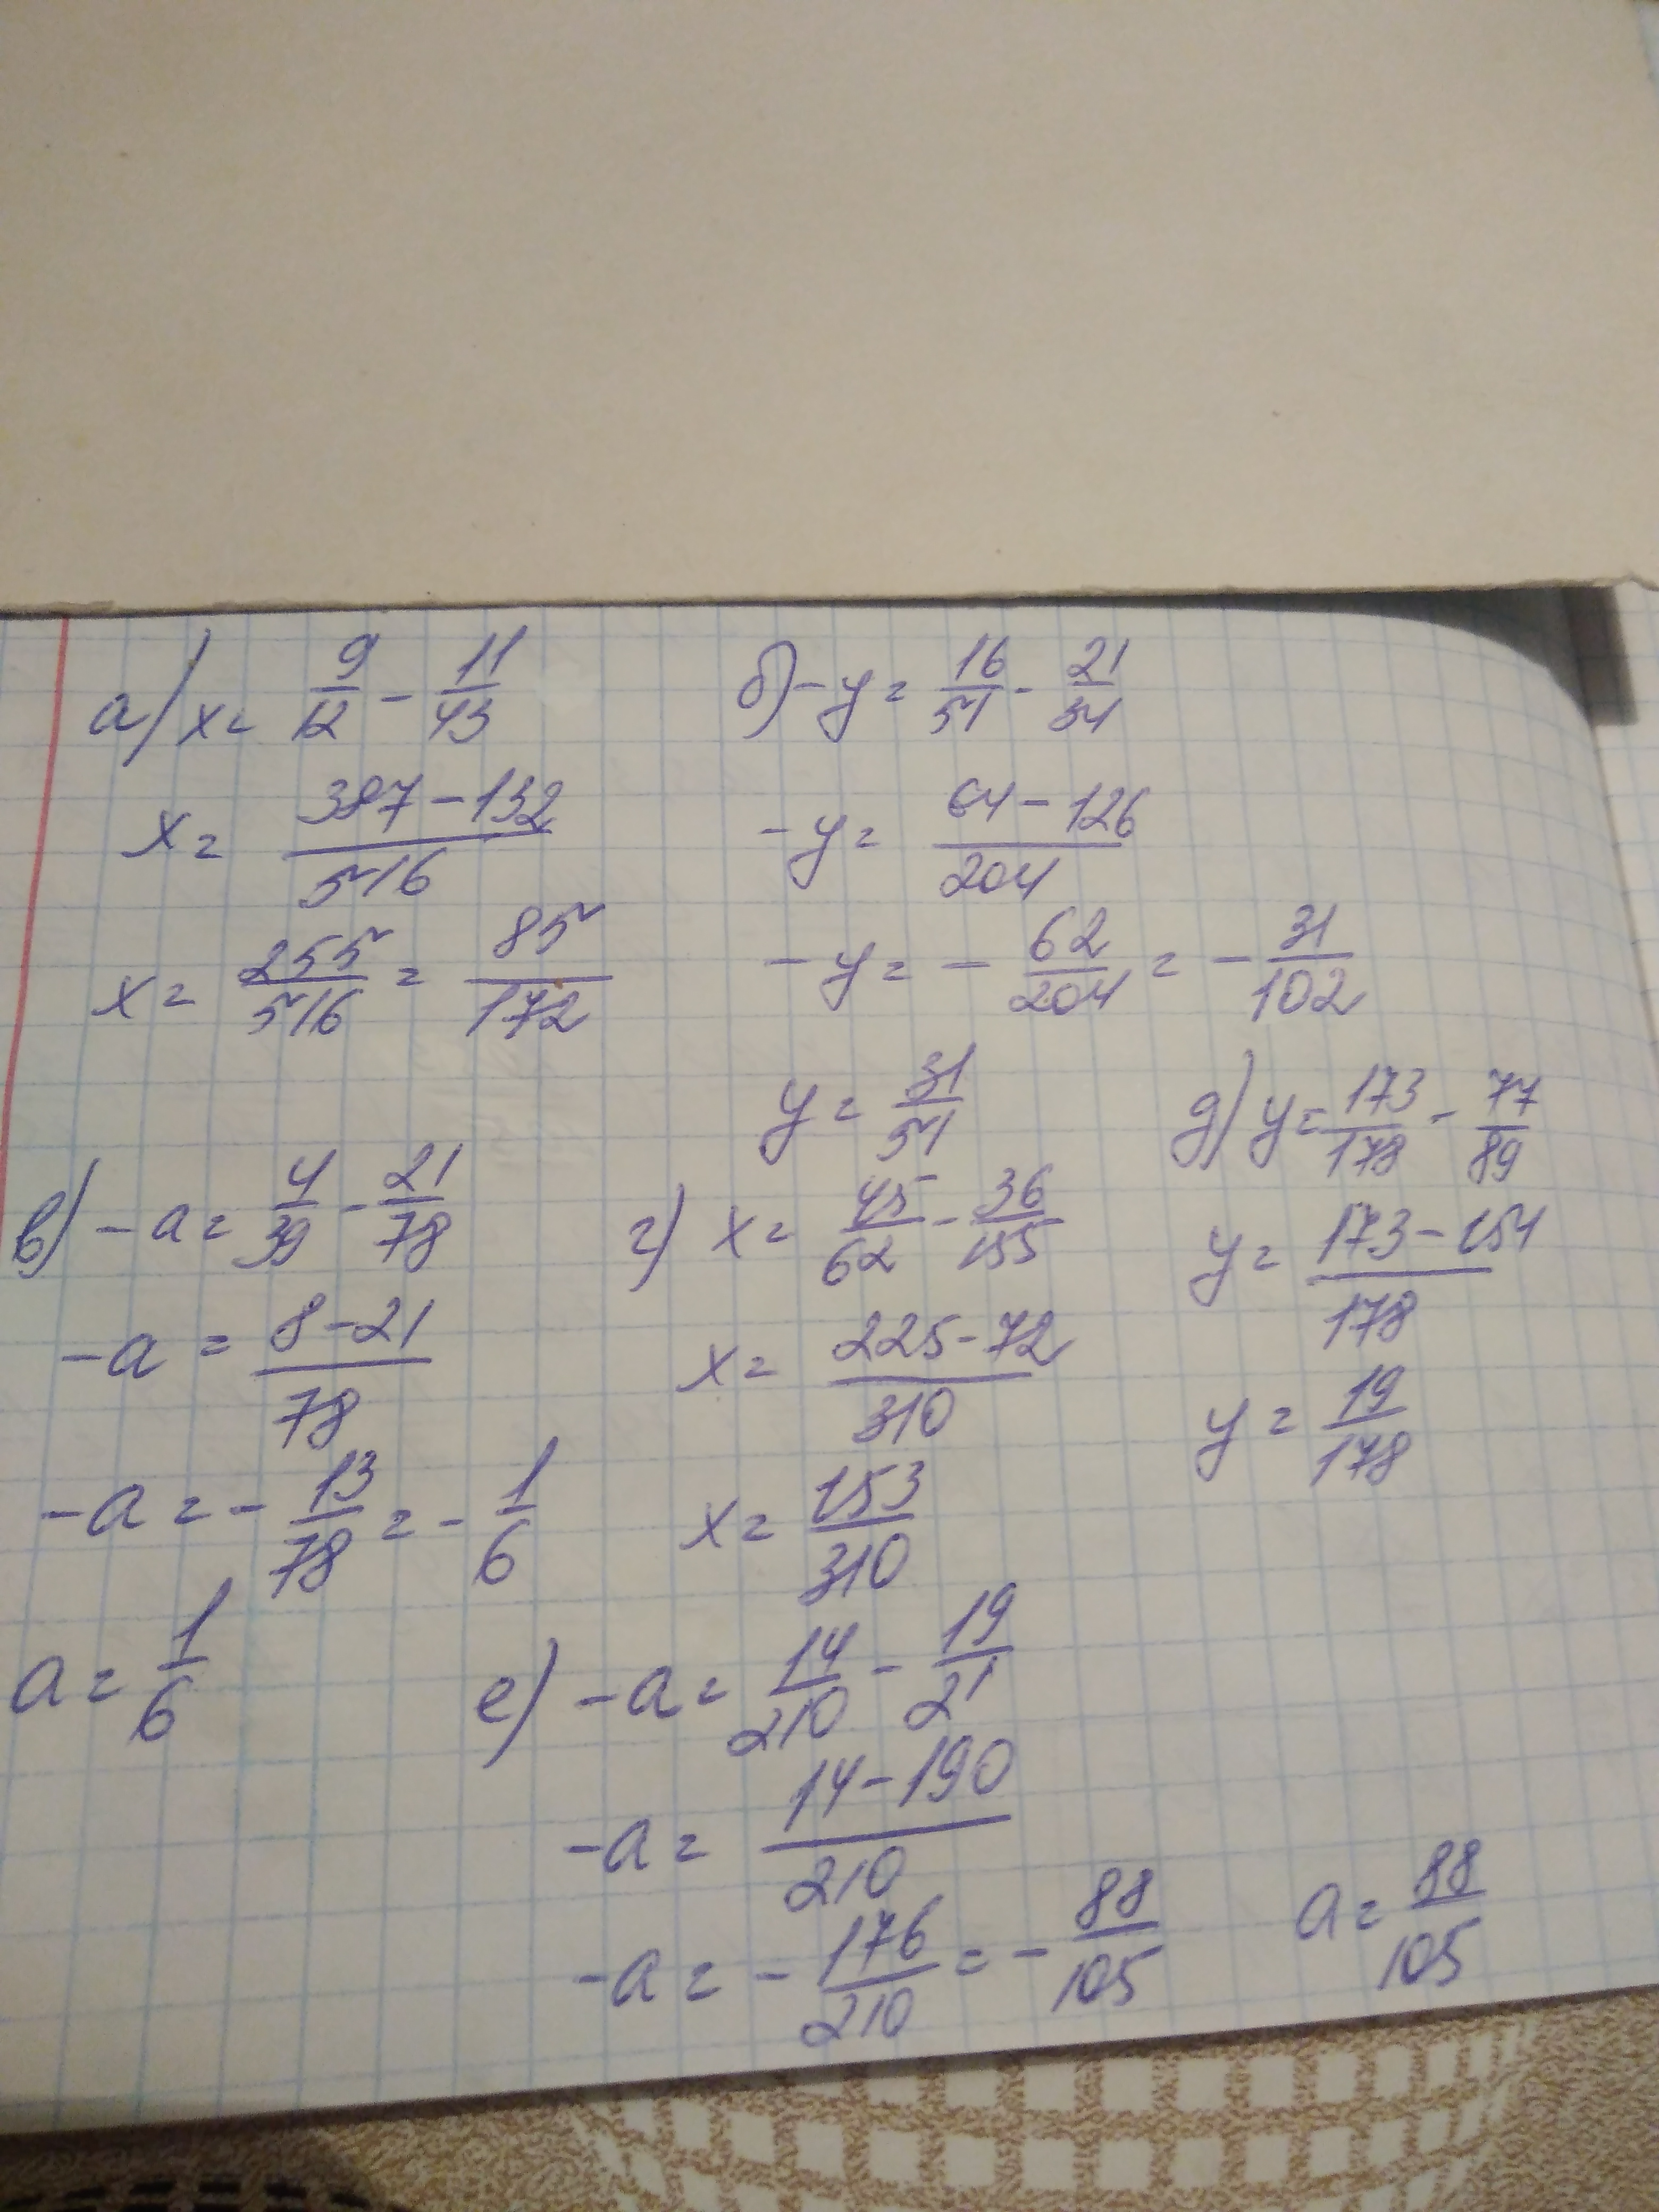 а) x = 9/12 - 11/43
x = (387 - 132)/516
x = 255/516 = 85/172
б) -y = 16/51 - 21/34
-y = (64 - 126)/204
-y = - 62/204 = - 31/102
y = 31/51
в) -a = 4/39 - 21/78
-a = (8 - 21)/78
-a = - 13/78 = - 1/6
a = 1/6
г) x = 45/62 - 36/155
x = (225 - 72)/310
x = 153/310
д) y = 173/178 - 77/89
y = (173 - 154)/178
y = 19/178
е) -a = 14/210 - 19/21
-a = (14 - 190)/210
-a = - 176/210 = - 88/105
a = 88/105